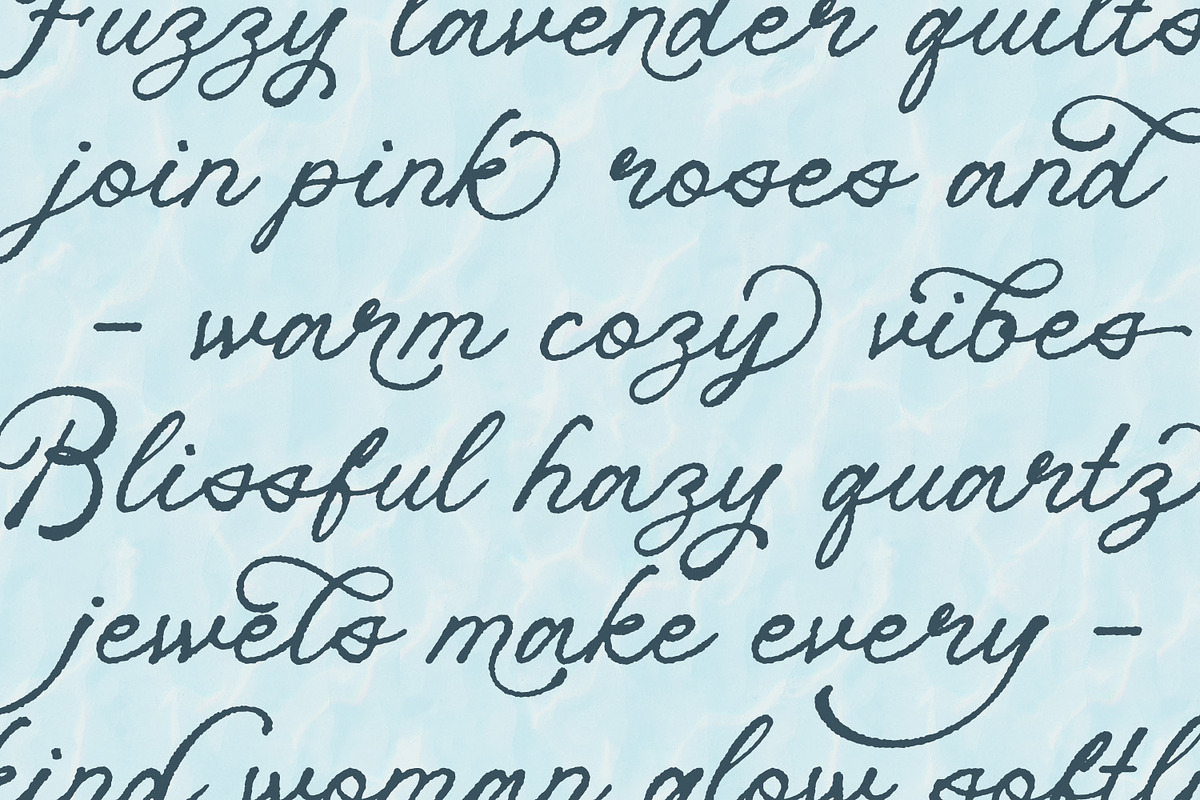 Fuzzy lavender quilts
join pink roses and
- warm cozy vibes
Blissful hazy quartz
jewels make every -
kind woman glow softly